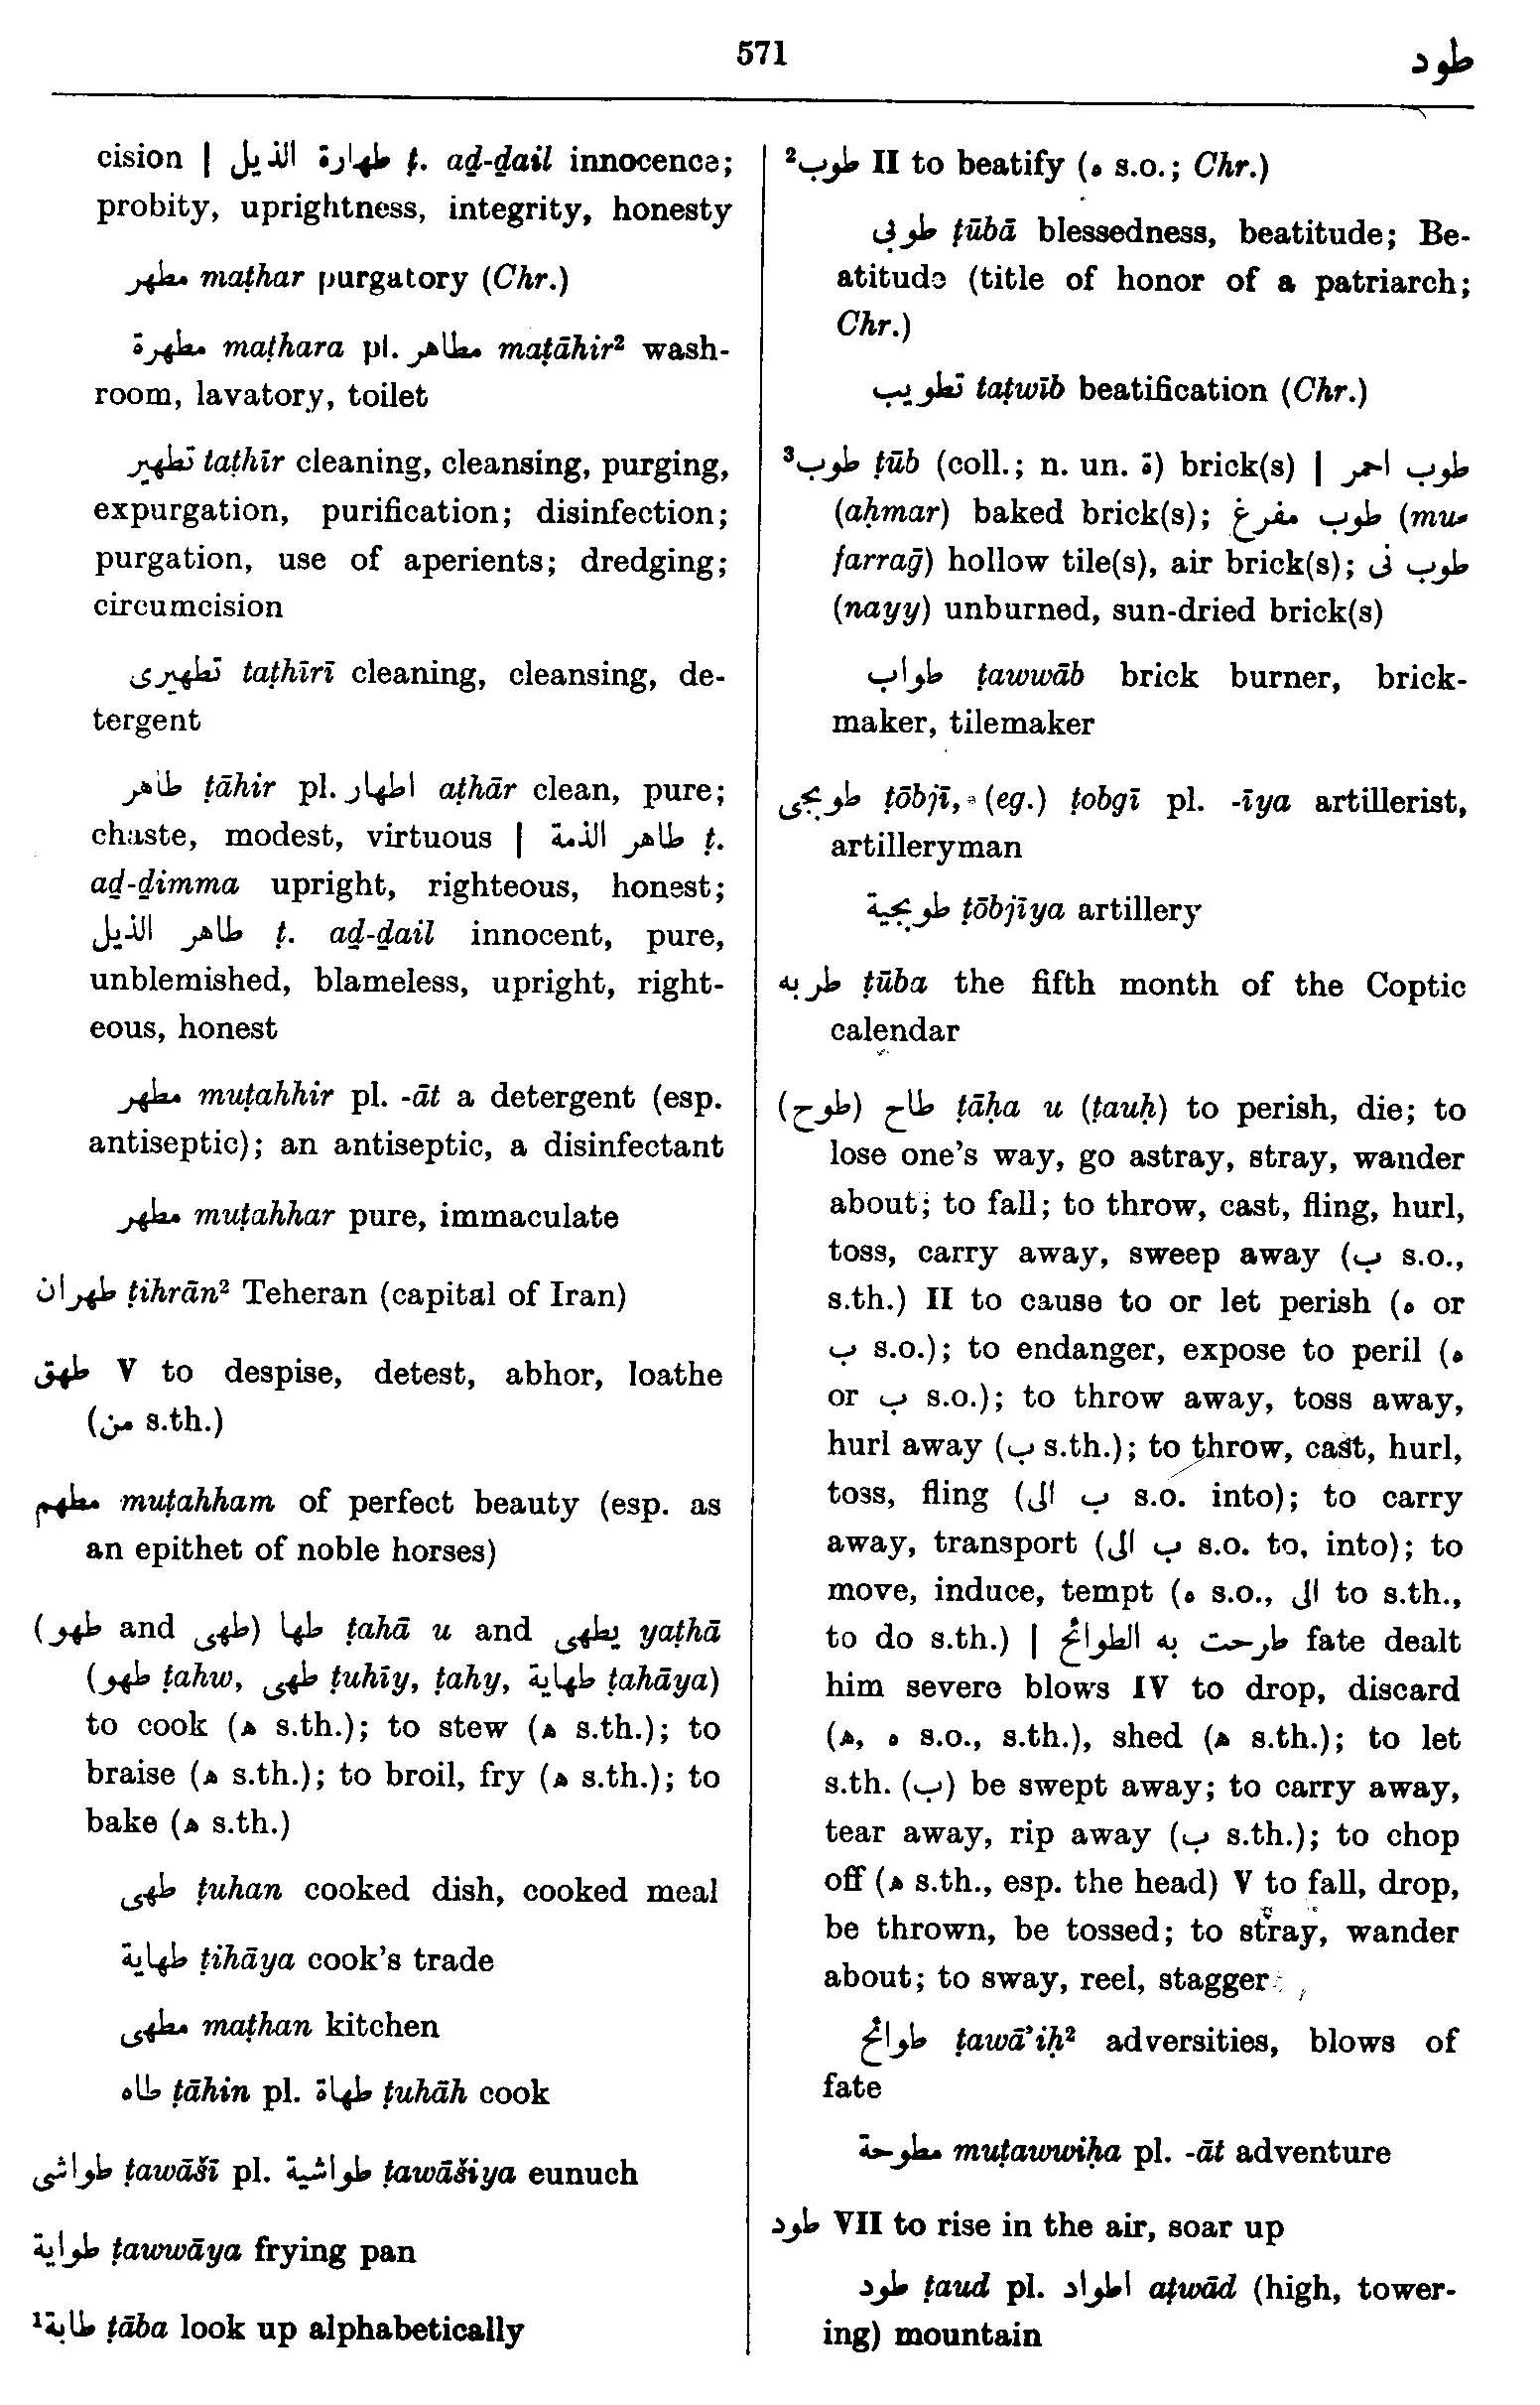 571
طود
cision | طهارة الذيل ṭ. aḏ-ḏail innocence;
probity, uprightness, integrity, honesty
مطهر maṭhar purgatory (Chr.)
مطهرة maṭhara pl. مطاهر maṭāhir² wash-
room, lavatory, toilet
تطهير taṭhīr cleaning, cleansing, purging,
expurgation, purification; disinfection;
purgation, use of aperients; dredging;
circumcision
تطهيرى taṭhīrī cleaning, cleansing, de-
tergent
طاهر ṭāhir pl. اطهار aṭhār clean, pure;
chaste, modest, virtuous | طاهر الذمة ṭ.
aḏ-ḏimma upright, righteous, honest;
طاهر الذيل ṭ. aḏ-ḏail innocent, pure,
unblemished, blameless, upright, right-
eous, honest
مطهر muṭahhir pl. -āt a detergent (esp.
antiseptic); an antiseptic, a disinfectant
مطهر muṭahhar pure, immaculate
طهران ṭihrān² Teheran (capital of Iran)
طهق V to despise, detest, abhor, loathe
(من s.th.)
مطهم muṭahham of perfect beauty (esp. as
an epithet of noble horses)
(طهو and طهى) طها ṭahā u and يطهى yaṭhā
(طهو ṭahw, طهى ṭuhīy, ṭahy, طهاية ṭahāya)
to cook (ه s.th.); to stew (ه s.th.); to
braise (ه s.th.); to broil, fry (ه s.th.); to
bake (ه s.th.)
طهى ṭuhan cooked dish, cooked meal
طهاية ṭihāya cook's trade
مطهى maṭhan kitchen
طاه ṭāhin pl. طهاة ṭuhāh cook
طواشى ṭawāšī pl. طواشية ṭawāšiya eunuch
طواية ṭawwāya frying pan
طابة¹ ṭāba look up alphabetically
طوب² II to beatify (ه s.o.; Chr.)
طوبى ṭūbā blessedness, beatitude; Be-
atitude (title of honor of a patriarch;
Chr.)
تطويب taṭwīb beatification (Chr.)
طوب³ ṭūb (coll.; n. un. ة) brick(s) | طوب احمر
(aḥmar) baked brick(s); طوب مفرغ (mu-
farraḡ) hollow tile(s), air brick(s); طوب نى
(nayy) unburned, sun-dried brick(s)
طواب ṭawwāb brick burner, brick-
maker, tilemaker
طوبجى ṭōbjī, (eg.) ṭobgī pl. -īya artillerist,
artilleryman
طوبجية ṭōbjīya artillery
طوبه ṭūba the fifth month of the Coptic
calendar
(طوح) طاح ṭāḥa u (ṭauḥ) to perish, die; to
lose one's way, go astray, stray, wander
about; to fall; to throw, cast, fling, hurl,
toss, carry away, sweep away (ب s.o.,
s.th.) II to cause to or let perish (ه or
ب s.o.); to endanger, expose to peril (ه
or ب s.o.); to throw away, toss away,
hurl away (ب s.th.); to throw, cast, hurl,
toss, fling (ب الى s.o. into); to carry
away, transport (ب الى s.o. to, into); to
move, induce, tempt (ه s.o., الى to s.th.,
to do s.th.) | طوحت به الطوائح fate dealt
him severe blows IV to drop, discard
(ه, ه s.o., s.th.), shed (ه s.th.); to let
s.th. (ب) be swept away; to carry away,
tear away, rip away (ب s.th.); to chop
off (ه s.th., esp. the head) V to fall, drop,
be thrown, be tossed; to stray, wander
about; to sway, reel, stagger
طوائح ṭawā'iḥ² adversities, blows of
fate
مطوحة muṭawwiḥa pl. -āt adventure
طود VII to rise in the air, soar up
طود ṭaud pl. اطواد aṭwād (high, tower-
ing) mountain